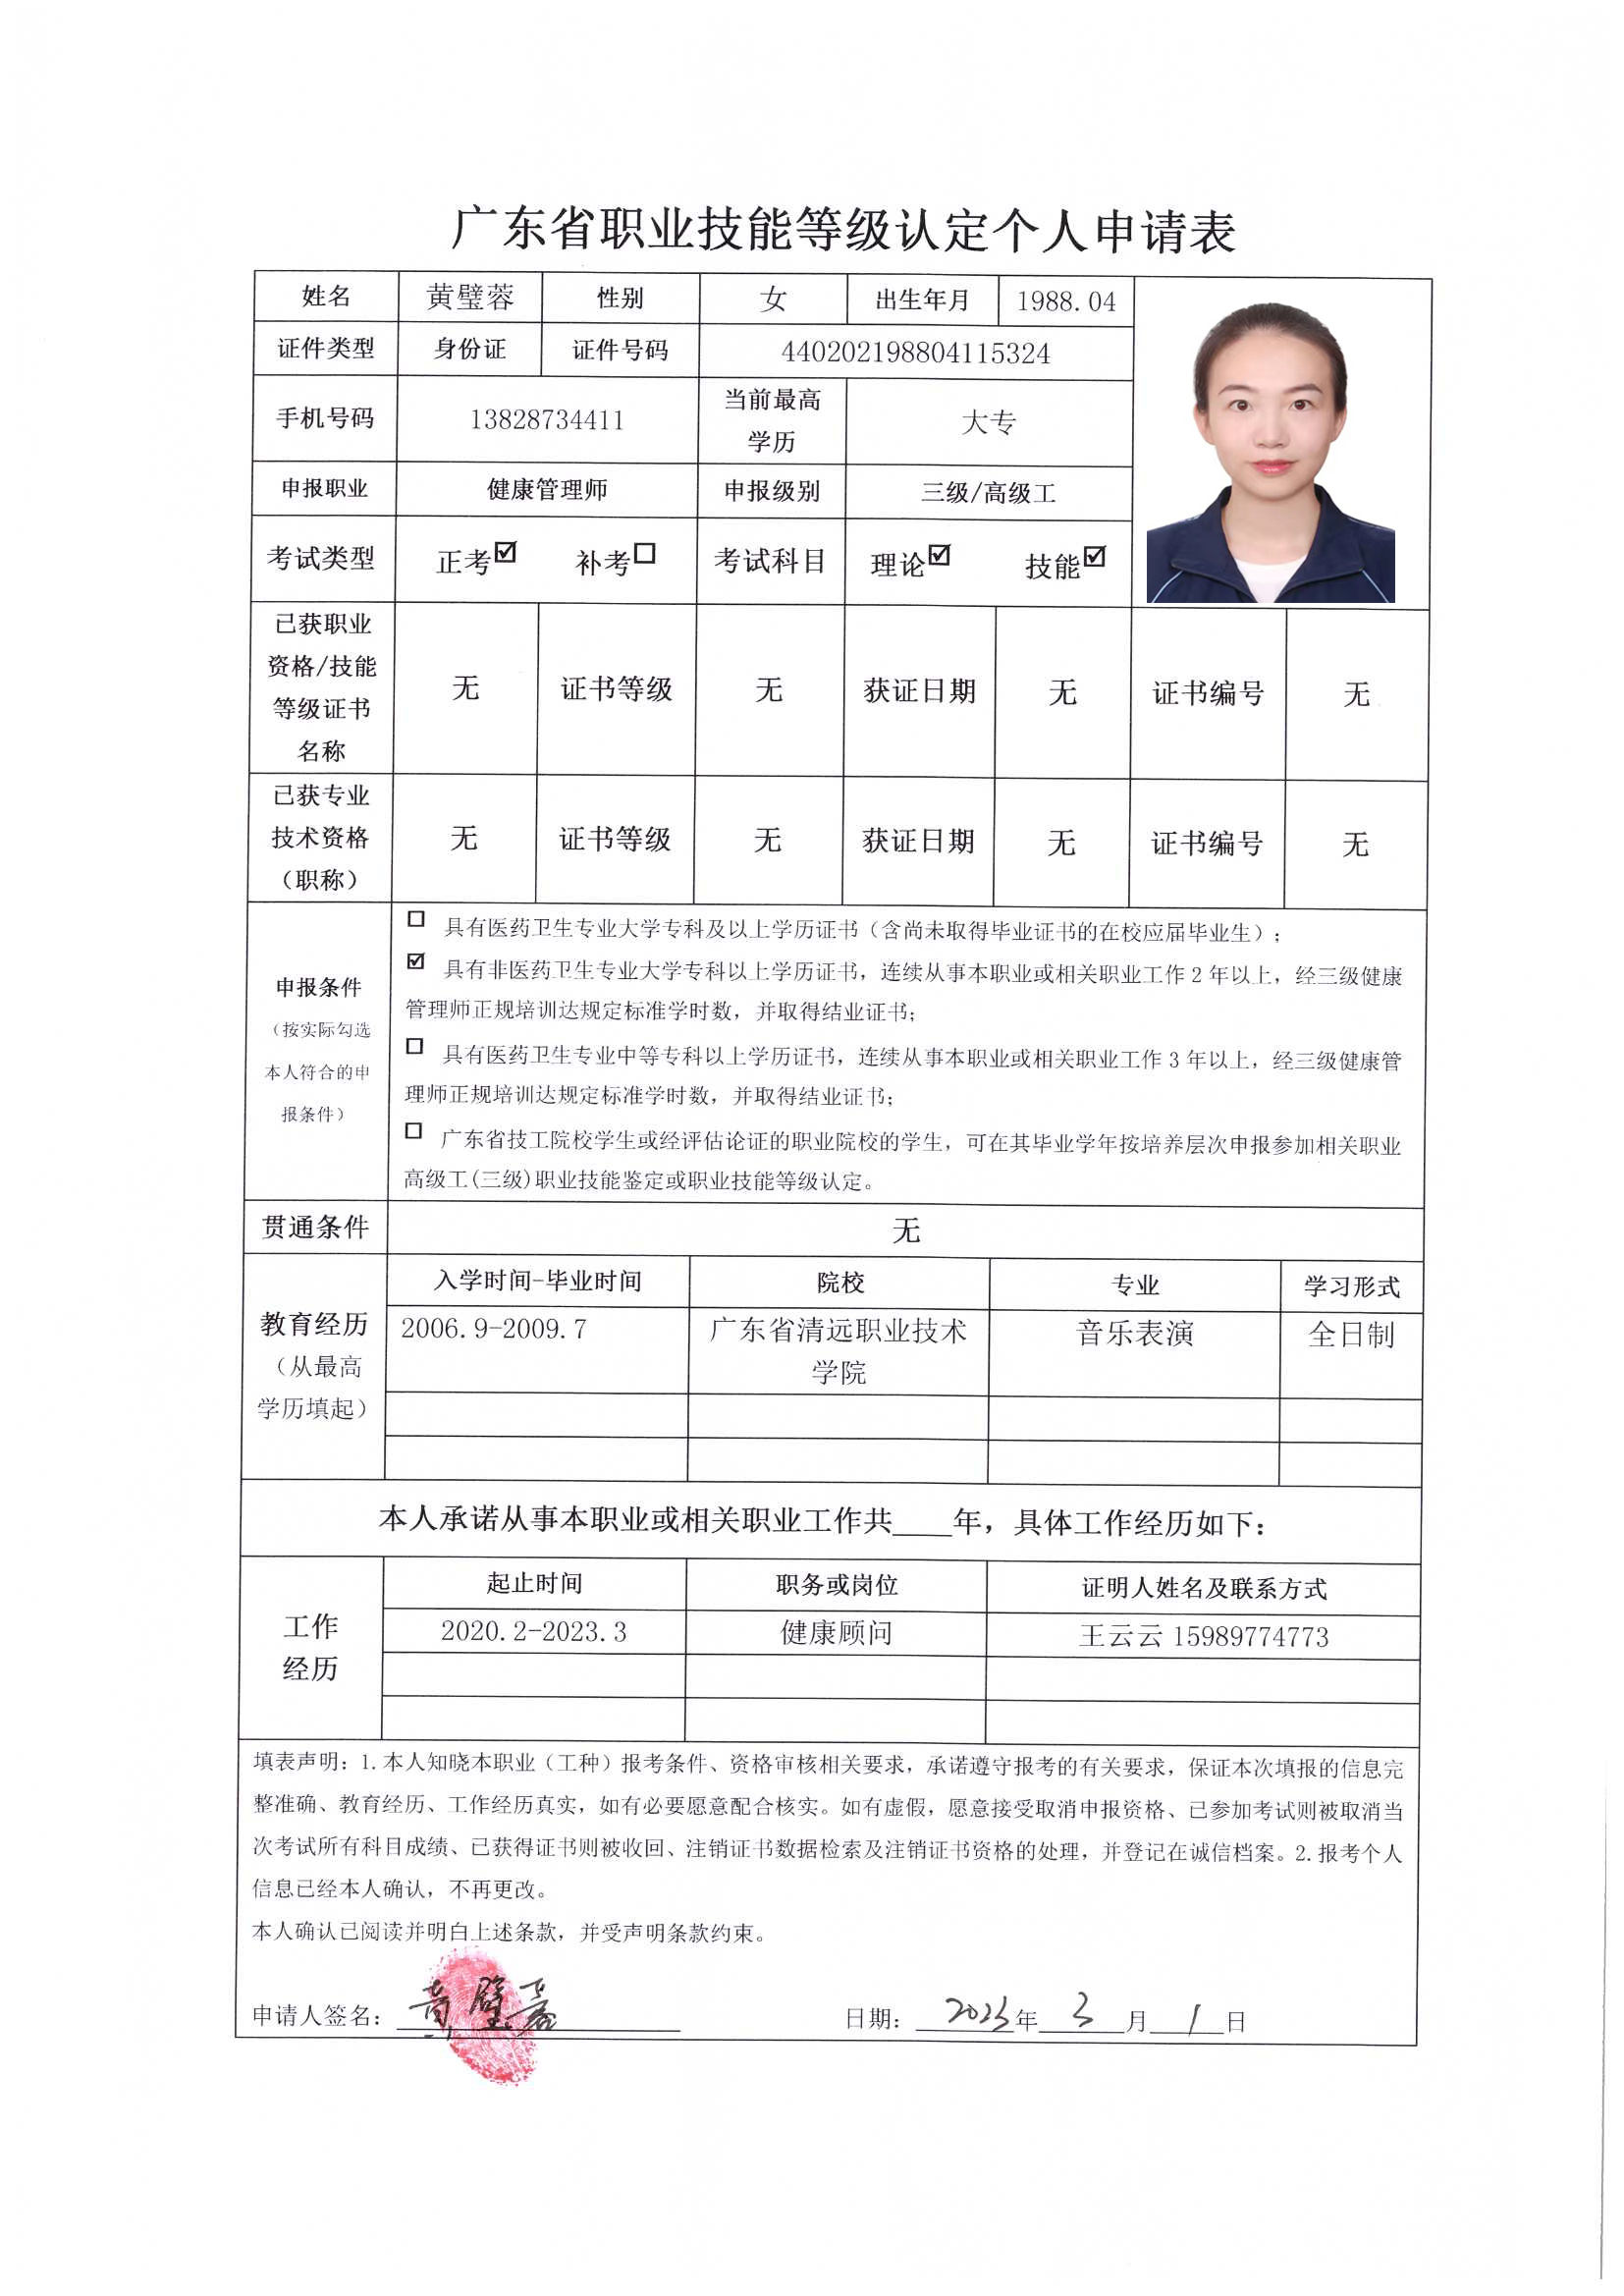 广东省职业技能等级认定个人申请表
姓名 黄璧蓉 性别 女 出生年月 1988.04
证件类型 身份证 证件号码 440202198804115324
手机号码 13828734411 当前最高学历 大专
申报职业 健康管理师 申报级别 三级/高级工
考试类型 正考☑ 补考☐ 考试科目 理论☑ 技能☑
已获职业资格/技能等级证书名称 无 证书等级 无 获证日期 无 证书编号 无
已获专业技术资格（职称） 无 证书等级 无 获证日期 无 证书编号 无
申报条件
（按实际勾选
本人符合的申
报条件）
☐ 具有医药卫生专业大学专科及以上学历证书（含尚未取得毕业证书的在校应届毕业生）；
☑ 具有非医药卫生专业大学专科以上学历证书，连续从事本职业或相关职业工作 2 年以上，经三级健康
管理师正规培训达规定标准学时数，并取得结业证书；
☐ 具有医药卫生专业中等专科以上学历证书，连续从事本职业或相关职业工作 3 年以上，经三级健康管
理师正规培训达规定标准学时数，并取得结业证书；
☐ 广东省技工院校学生或经评估论证的职业院校的学生，可在其毕业学年按培养层次申报参加相关职业
高级工(三级)职业技能鉴定或职业技能等级认定。
贯通条件 无
教育经历
（从最高
学历填起）
入学时间-毕业时间 院校 专业 学习形式
2006.9-2009.7 广东省清远职业技术学院 音乐表演 全日制
本人承诺从事本职业或相关职业工作共____年，具体工作经历如下：
工作
经历
起止时间 职务或岗位 证明人姓名及联系方式
2020.2-2023.3 健康顾问 王云云 15989774773
填表声明：1.本人知晓本职业（工种）报考条件、资格审核相关要求，承诺遵守报考的有关要求，保证本次填报的信息完
整准确、教育经历、工作经历真实，如有必要愿意配合核实。如有虚假，愿意接受取消申报资格、已参加考试则被取消当
次考试所有科目成绩、已获得证书则被收回、注销证书数据检索及注销证书资格的处理，并登记在诚信档案。2.报考个人
信息已经本人确认，不再更改。
本人确认已阅读并明白上述条款，并受声明条款约束。
申请人签名：黄璧蓉 日期：2023年3月1日